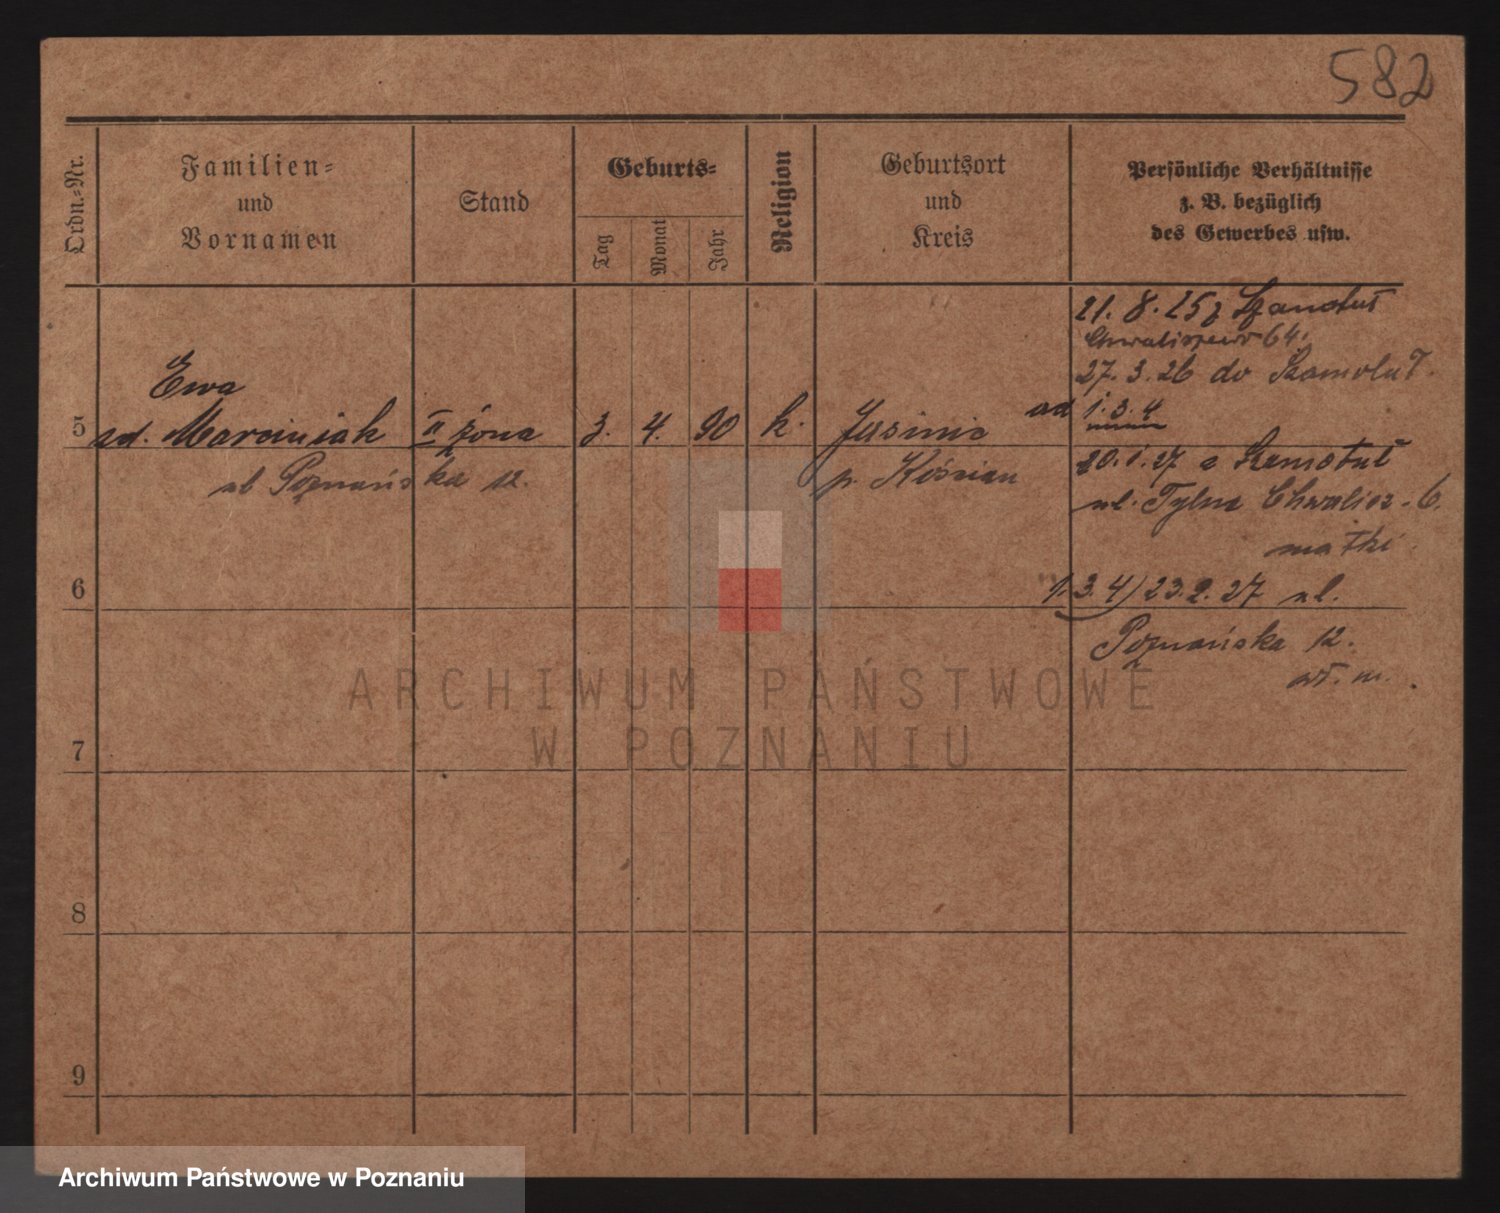 582
Ordn.-Nr.
Familien-
und
Vornamen
Stand
Geburts-
Tag
Monat
Jahr
Religion
Geburtsort
und
Kreis
Persönliche Verhältnisse
z. B. bezüglich
des Gewerbes usw.
21. 8. 25 z Szamotuł
Chwaliszewo 64.
27. 3. 26 do Szamotuł.
ad 1. 3. 4
Ewa
5 zd. Marciniak II żona 3. 4. 90 k. Jasinie
ul Poznańska 12. p. Kościan
20. 1. 27 z Szamotuł
ul. Tylne Chwalisz. 6.
matki
6
1. 3. 4) 23. 2. 27 ul.
Poznańska 12.
wł. m.
ARCHIWUM PAŃSTWOWE
W POZNANIU
7
8
9
Archiwum Państwowe w Poznaniu